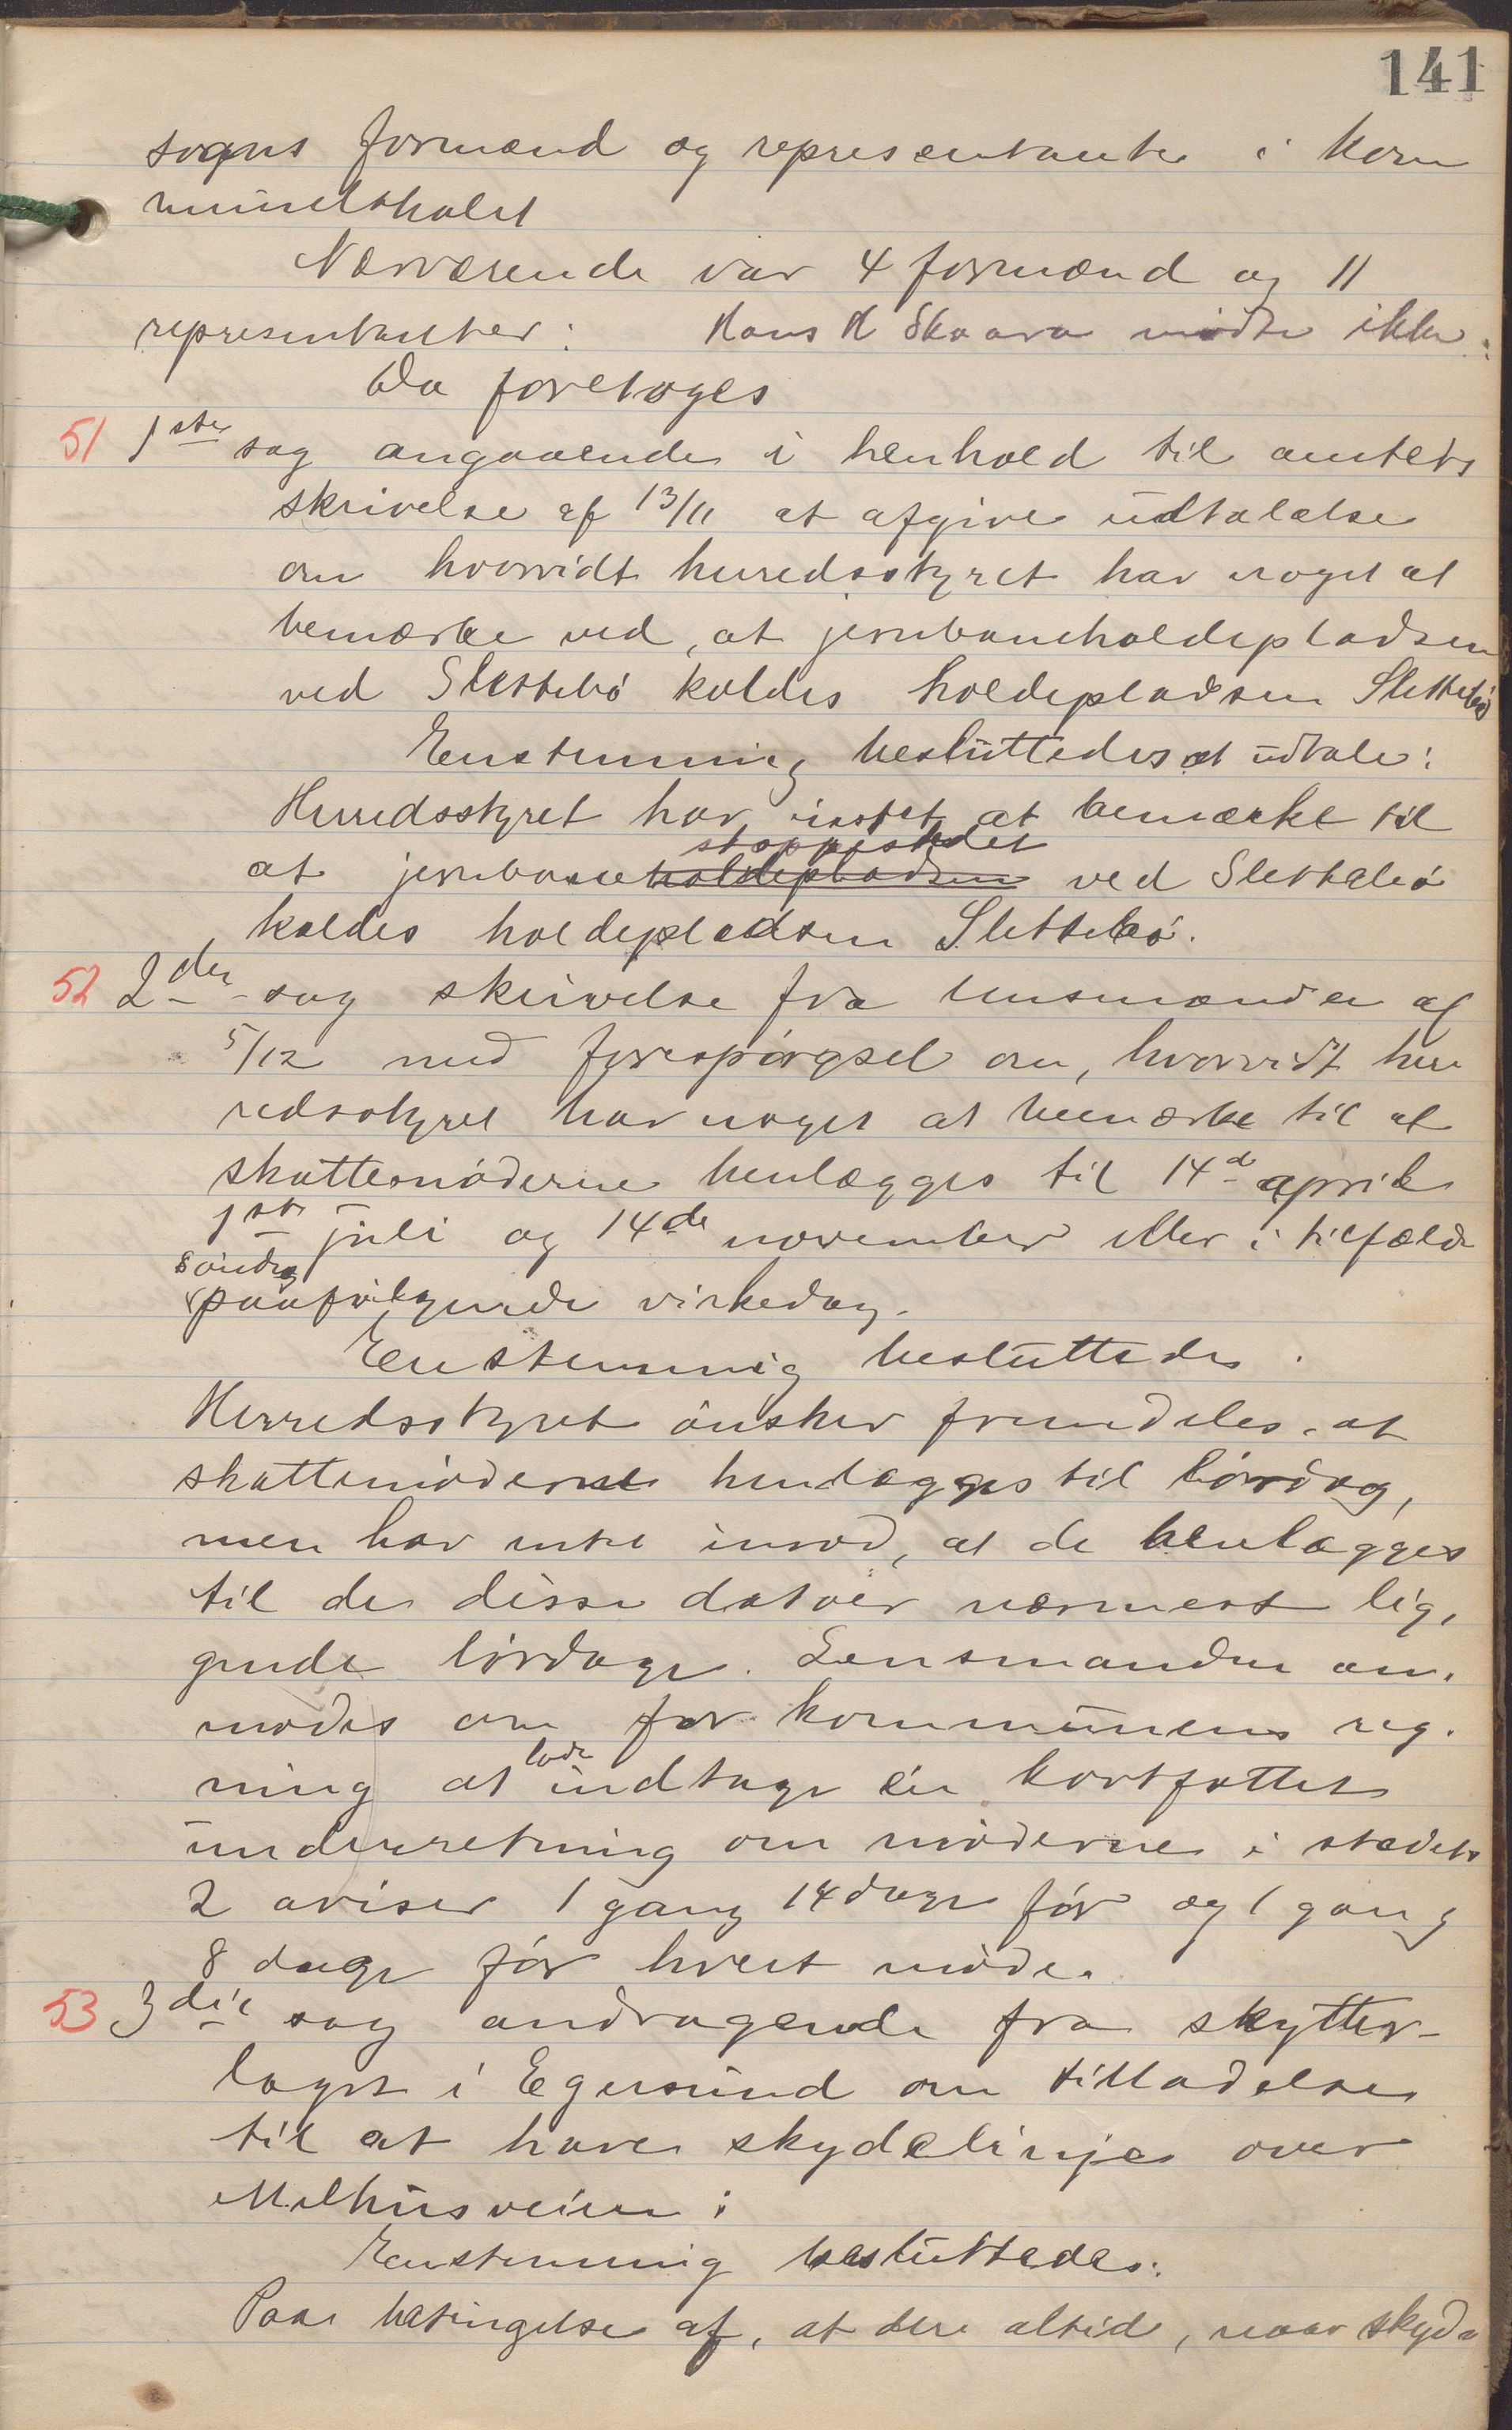 141
sogns formænd og representanter i Kom
munelokalet
Nærværende var 4 formænd og 11
representanter: Hans H Skaara mødte ikke.
Da foretoges
51 1ste sag angaaende i henhold til amtets
skrivelse af 13/11 at afgive udtalelse
om hvorvidt herredsstyret har noget at
bemærke ved, at jernbaneholdepladsen
ved Slettebø kaldes holdepladsen Slettebø
Enstemmig besluttedes at udtale:
Herredsstyret har intet at bemærke til
stoppestedet
at jernbaneholdepladsen ved Slettebø
kaldes holdepladsen Slettebø.
52 2den sag skrivelse fra lensmanden af
5/12 med forespørgsel om, hvorvidt her
redsstyret har noget at bemærke til at
skattemøderne henlægges til 14de april
1ste juli og 14de november eller i tilfælde
søndag
paafølgende virkedag.
Enstemmig besluttedes.
Herredsstyret ønsker fremdeles, at
skattemøderne henlægges til lørdag,
men har intet imod, at de henlægges
til de disse datoer nærmest lig,
gende lørdage. Lensmanden an,
modes om for kommunens reg.
lade
ning at indtage en kortfattet
underretning om møderne i stedets
2 aviser 1 gang 14 dage før og 1 gang
8 dage før hvert møde.
53 3die sag andragende fra skytter-
laget i Egersund om tilladelse
til at have skydelinje over
Melhusveien:
Enstemmig besluttedes:
Paa betingelse af, at der altid, naar skyd